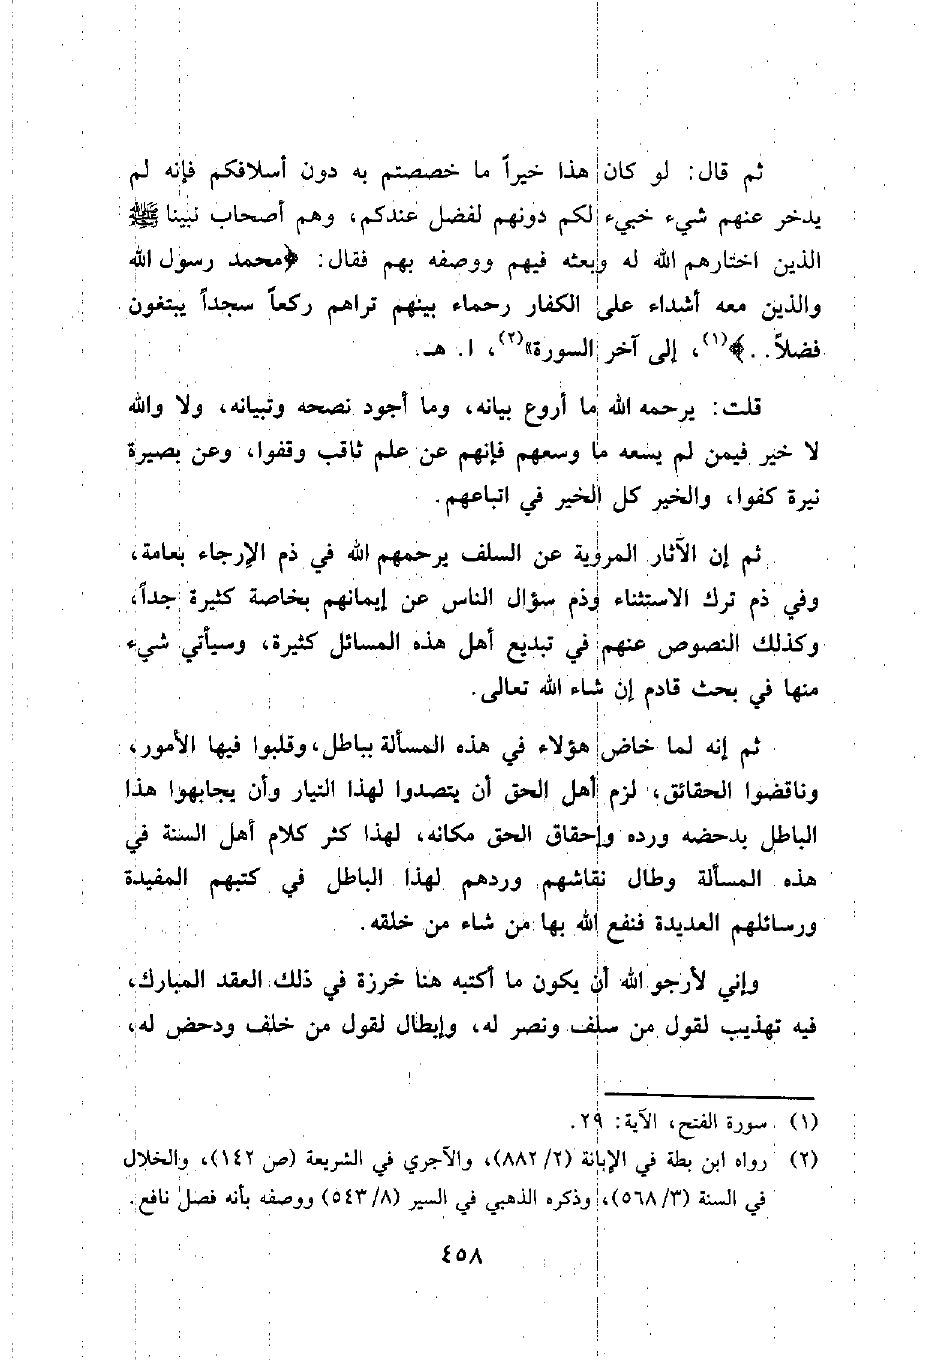 ثم قال: لو كان هذا خيراً ما خصصتم به دون أسلافكم فإنه لم
يدخر عنهم شيء خبيء لكم دونهم لفضل عندكم، وهم أصحاب نبينا ﷺ
الذين اختارهم الله له وبعثه فيهم ووصفه بهم فقال: ﴿محمد رسول الله
والذين معه أشداء على الكفار رحماء بينهم تراهم ركعاً سجداً يبتغون
فضلاً..﴾(١)، إلى آخر السورة»(٢)، ا. هـ.
قلت: يرحمه الله ما أروع بيانه، وما أجود نصحه وتبيانه، ولا والله
لا خير فيمن لم يسعه ما وسعهم فإنهم عن علم ثاقب وقفوا، وعن بصيرة
نيرة كفوا، والخير كل الخير في اتباعهم.
ثم إن الآثار المروية عن السلف يرحمهم الله في ذم الإرجاء بعامة،
وفي ذم ترك الاستثناء وذم سؤال الناس عن إيمانهم بخاصة كثيرة جداً،
وكذلك النصوص عنهم في تبديع أهل هذه المسائل كثيرة، وسيأتي شيء
منها في بحث قادم إن شاء الله تعالى.
ثم إنه لما خاض هؤلاء في هذه المسألة بباطل، وقلبوا فيها الأمور،
وناقضوا الحقائق، لزم أهل الحق أن يتصدوا لهذا التيار وأن يجابهوا هذا
الباطل بدحضه ورده وإحقاق الحق مكانه، لهذا كثر كلام أهل السنة في
هذه المسألة وطال نقاشهم وردهم لهذا الباطل في كتبهم المفيدة
ورسائلهم العديدة فنفع الله بها من شاء من خلقه.
وإني لأرجو الله أن يكون ما أكتبه هنا خرزة في ذلك العقد المبارك،
فيه تهذيب لقول من سلف ونصر له، وإبطال لقول من خلف ودحض له،
(١) سورة الفتح، الآية: ٢٩.
(٢) رواه ابن بطة في الإبانة (٢/ ٨٨٢)، والآجري في الشريعة (ص ١٤٢)، والخلال
في السنة (٣/ ٥٦٨)، وذكره الذهبي في السير (٨/ ٥٤٣) ووصفه بأنه فصل نافع.
٤٥٨